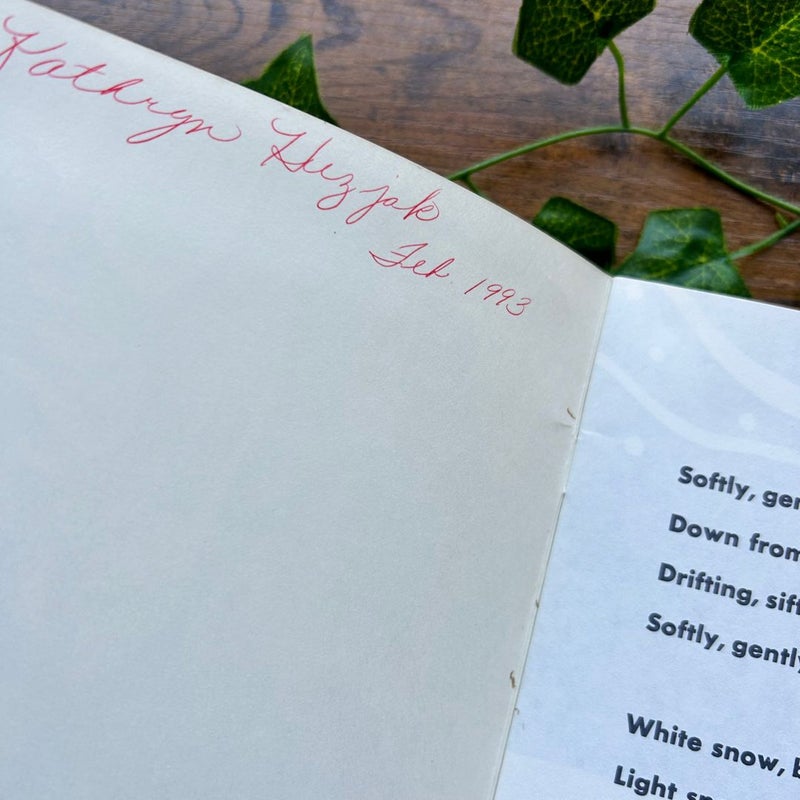 Kathryn Hezjak
Feb. 1993
Softly, gen
Down from
Drifting, sift
Softly, gently
White snow,
Light sn